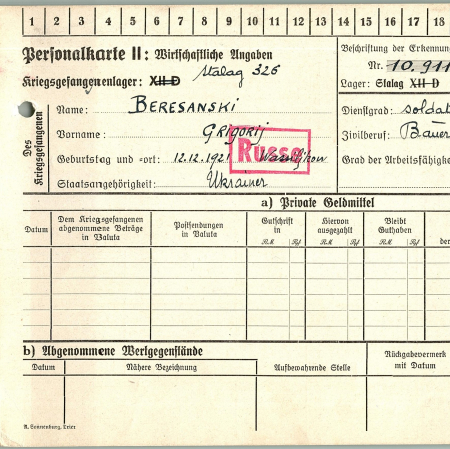 1 2 3 4 5 6 7 8 9 10 11 12 13 14 15 16 17 18
Personalkarte II: Wirtschaftliche Angaben
Kriegsgefangenenlager: XII D Stalag 326
Beschriftung der Erkennun
Nr. 10.911
Lager: Stalag XII D
Des Kriegsgefangenen
Name: BERESANSKI
Vorname: GRIGORIJ
Geburtstag und -ort: 12.12.1921
Staatsangehörigkeit: Ukrainer
Russe
Dienstgrad: soldat
Zivilberuf: Bauer
Grad der Arbeitsfähigke
a) Private Geldmittel
Datum
Dem Kriegsgefangenen abgenommene Beträge in Valuta
Postsendungen in Valuta
Gutschrift in
RM. Rpf
Hiervon ausgezahlt
RM. Rpf
Bleibt Guthaben
RM. Rpf
der
b) Abgenommene Wertgegenstände
Datum
Nähere Bezeichnung
Aufbewahrende Stelle
Rückgabevermerk mit Datum
R. Sonnenburg, Trier